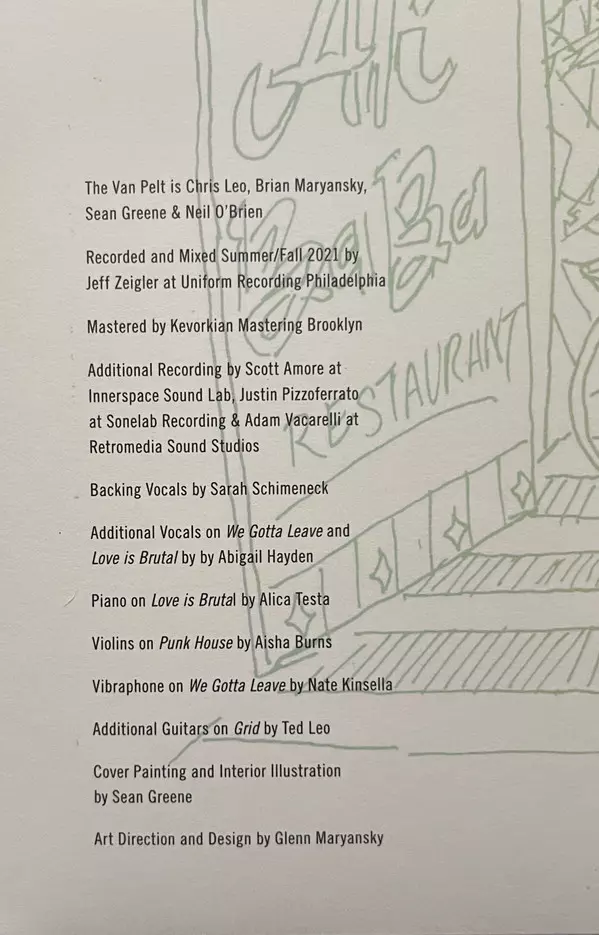 Ali
Baba
RESTAURANT
The Van Pelt is Chris Leo, Brian Maryansky,
Sean Greene & Neil O'Brien
Recorded and Mixed Summer/Fall 2021 by
Jeff Zeigler at Uniform Recording Philadelphia
Mastered by Kevorkian Mastering Brooklyn
Additional Recording by Scott Amore at
Innerspace Sound Lab, Justin Pizzoferrato
at Sonelab Recording & Adam Vacarelli at
Retromedia Sound Studios
Backing Vocals by Sarah Schimeneck
Additional Vocals on We Gotta Leave and
Love is Brutal by by Abigail Hayden
Piano on Love is Brutal by Alica Testa
Violins on Punk House by Aisha Burns
Vibraphone on We Gotta Leave by Nate Kinsella
Additional Guitars on Grid by Ted Leo
Cover Painting and Interior Illustration
by Sean Greene
Art Direction and Design by Glenn Maryansky